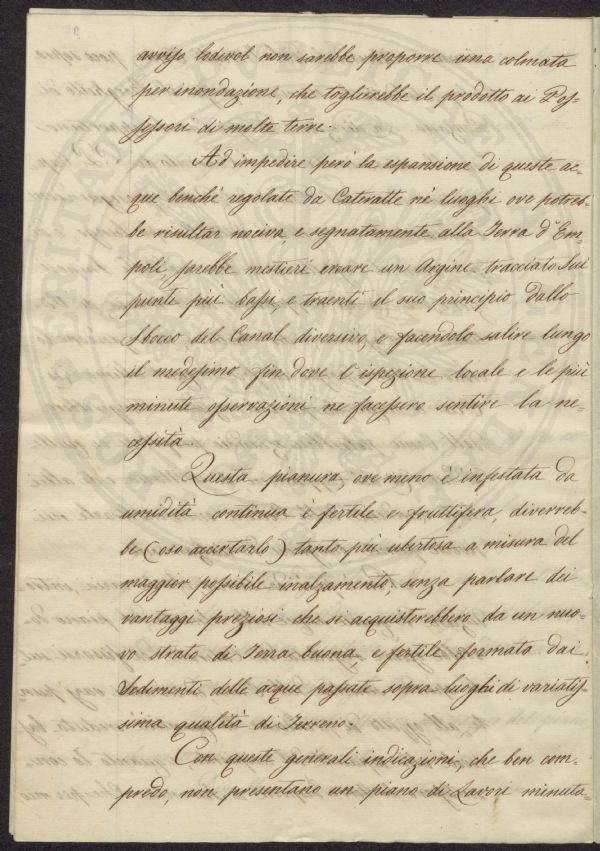 avviso lodevol non sarebbe proporre una colmata
per inondazione, che toglierebbe il prodotto ai Pos-
sessori di molte terre.
Ad impedire però la espansione di queste ac-
que benchè regolate da Cateratte ne' luoghi ove potreb-
be risultar nociva, e segnatamente alla Terra d'Em-
poli, sarebbe mestieri creare un Argine tracciato Sui
punti più bassi, e traenti il suo principio dallo
Sbocco del Canal diversivo, e facendolo salire lungo
il medesimo fin dove l'ispezione locale e le più
minute osservazioni ne facessero sentire la ne-
cessità.
Questa pianura, ove meno è infestata da
umidità continua è fertile e fruttifera, diverreb-
be (oso accertarlo) tanto più ubertosa a misura del
maggior possibile inalzamento, senza parlare dei
vantaggi preziosi che si acquisterebbero da un nuo-
vo strato di Terra buona, e fertile formata dai
Sedimenti delle acque passate sopra luoghi di variatis-
sima qualità di Terreno.
Con queste generali indicazioni, che ben com-
predo, non presentano un piano di Lavori minuta-